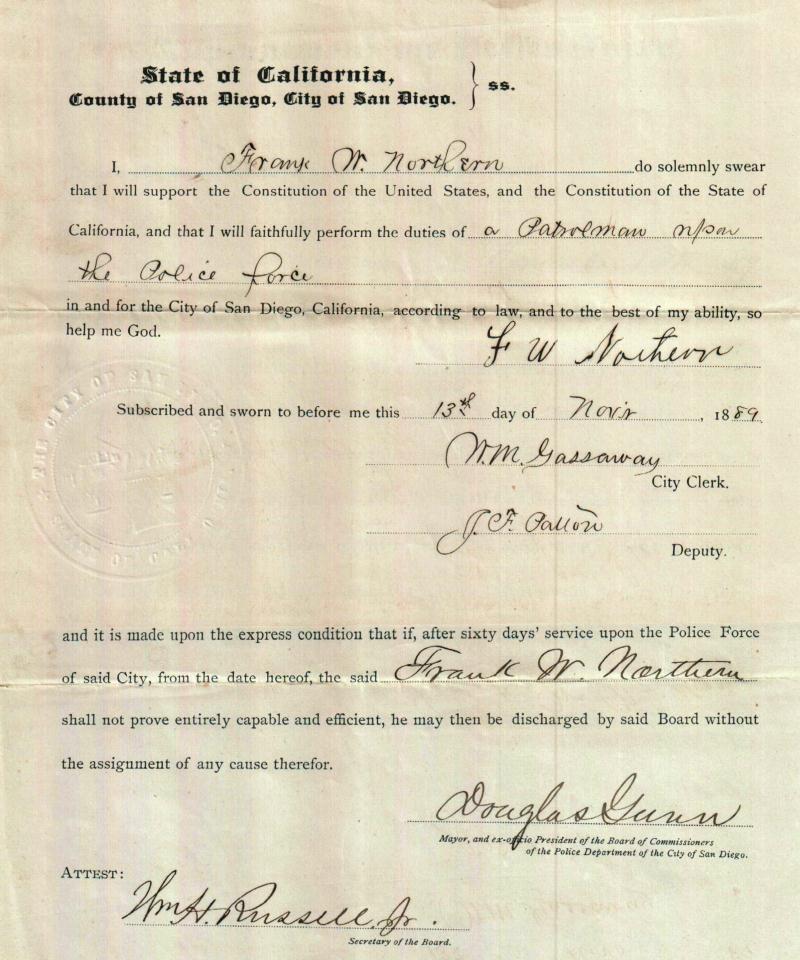 State of California,
County of San Diego, City of San Diego. } ss.
I, Frank W. Northern do solemnly swear
that I will support the Constitution of the United States, and the Constitution of the State of
California, and that I will faithfully perform the duties of a Patrolman upon
the Police force
in and for the City of San Diego, California, according to law, and to the best of my ability, so
help me God.
F W Northern
Subscribed and sworn to before me this 13th day of Nov'r, 1889.
W. M. Gassaway
City Clerk.
J. F. Patton
Deputy.
and it is made upon the express condition that if, after sixty days' service upon the Police Force
of said City, from the date hereof, the said Frank W. Northern
shall not prove entirely capable and efficient, he may then be discharged by said Board without
the assignment of any cause therefor.
Douglas Gunn
Mayor, and ex-officio President of the Board of Commissioners
of the Police Department of the City of San Diego.
ATTEST:
Wm H. Russell, Jr.
Secretary of the Board.